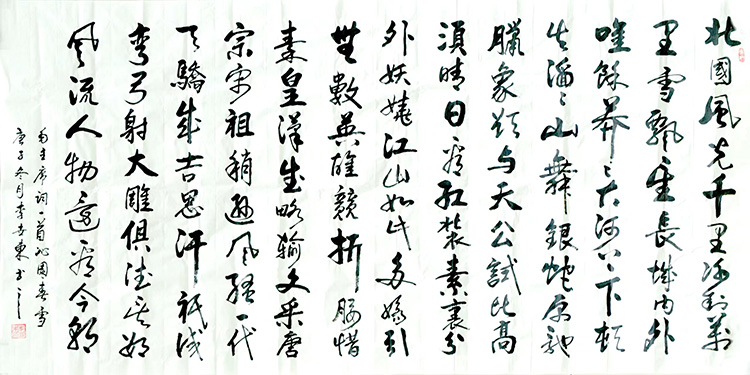 北國風光千里冰封萬
里雪飄望長城內外
唯餘莽〻大河上下頓
失滔〻山舞銀蛇原馳
臘象欲与天公試比高
須晴日看紅裝素裹分
外妖嬈江山如此多嬌引
無數英雄競折腰惜
秦皇漢武略輸文采唐
宗宋祖稍遜風騷一代
天驕成吉思汗衹識
彎弓射大雕俱往矣數
風流人物還看今朝
毛主席詞一首沁園春雪
庚子冬月李